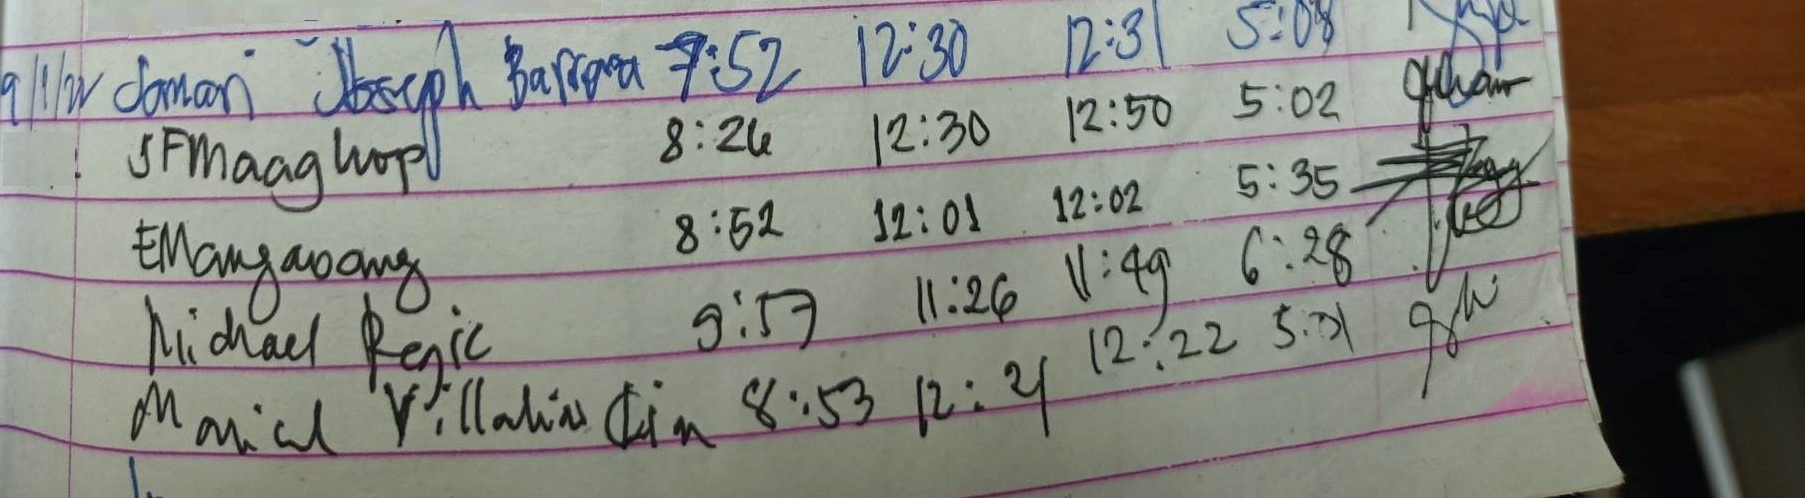 9/1/22 Jomari Joseph Barrera 7:52 12:30 12:31 5:08
SFMaaghop 8:26 12:30 12:50 5:02
EMangaoang 8:52 12:01 12:02 5:35
Michael Regic 9:57 11:26 11:49 6:28
Maricel Villahin 8:53 12:21 12:22 5:01